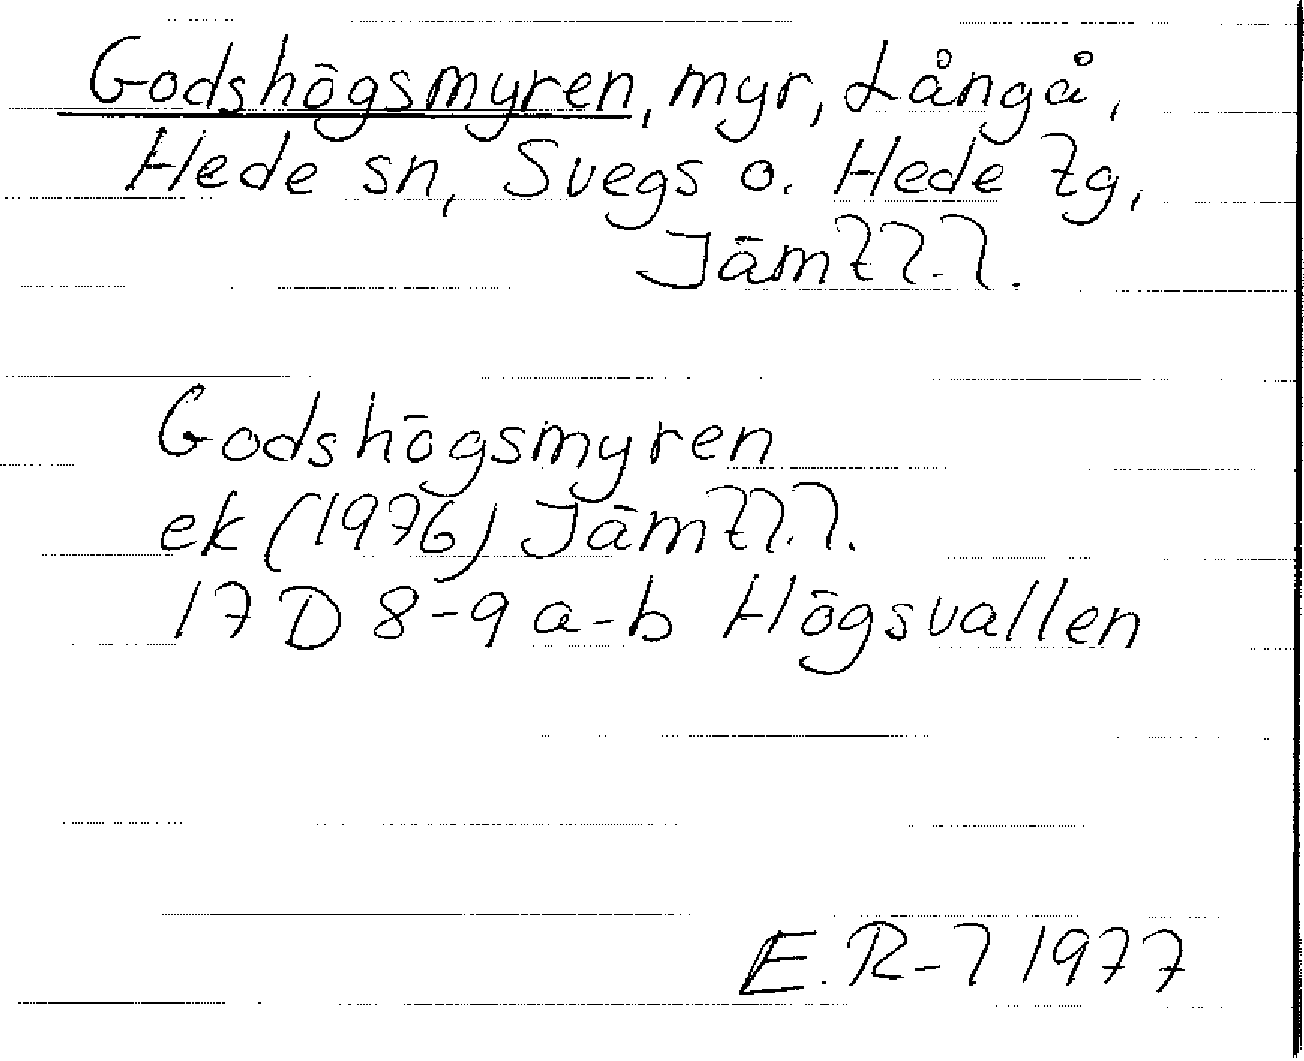 Godshögsmyren, myr, Långå,
Hede sn, Svegs o. Hede tg,
Jämtl.l.
Godshögsmyren
ek (1976) Jämtl.l.
17 D 8-9 a-b Högsvallen
E. R-l 1977